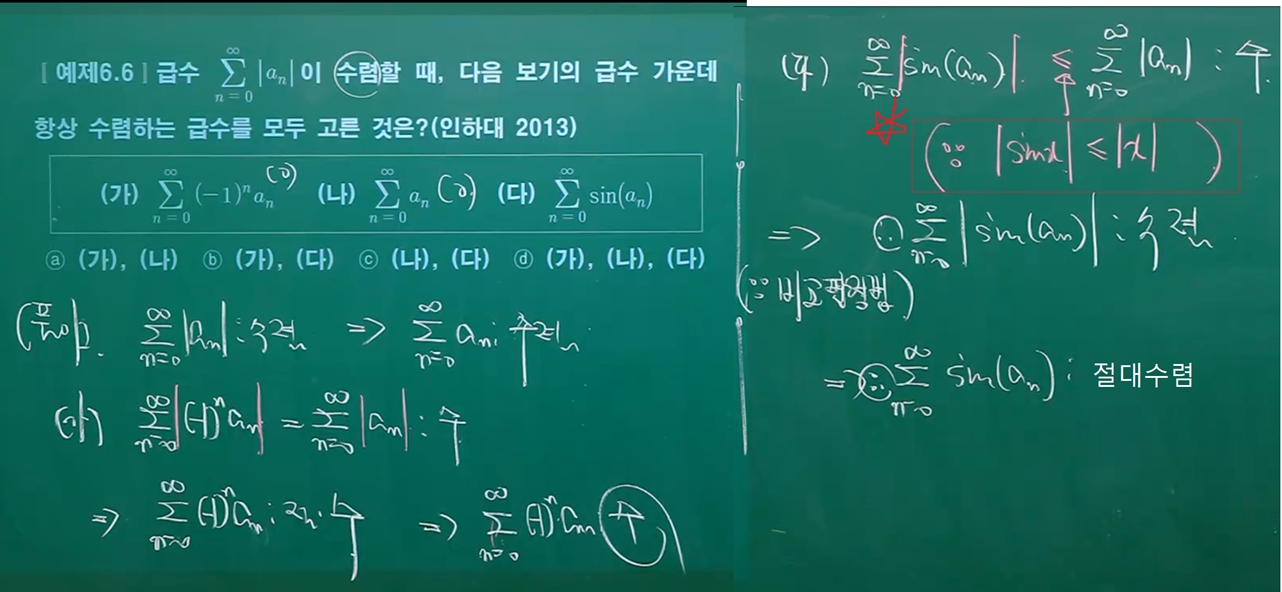 [예제6.6] 급수 \sum_{n=0}^{∞} |a_n| 이 수렴할 때, 다음 보기의 급수 가운데
항상 수렴하는 급수를 모두 고른 것은?(인하대 2013)
(가) \sum_{n=0}^{∞} (-1)^n a_n (0) (나) \sum_{n=0}^{∞} a_n (0) (다) \sum_{n=0}^{∞} sin(a_n)
ⓐ (가), (나) ⓑ (가), (다) ⓒ (나), (다) ⓓ (가), (나), (다)
(풀이). \sum_{n=0}^{∞} |a_n| : 수렴 => \sum_{n=0}^{∞} a_n : 수렴
(가) \sum_{n=0}^{∞} |(-1)^n a_n| = \sum_{n=0}^{∞} |a_n| : 수
=> \sum_{n=0}^{∞} (-1)^n a_n : 절. 수 => \sum_{n=0}^{∞} (-1)^n a_n 수
(다) \sum_{n=0}^{∞} |sin(a_n)| ≤ \sum_{n=0}^{∞} |a_n| : 수
(∵ |sin x| ≤ |x| )
=> ∴ \sum_{n=0}^{∞} |sin(a_n)| : 수렴
(∵ 비교판정법)
=> ∴ \sum_{n=0}^{∞} sin(a_n) : 절대수렴